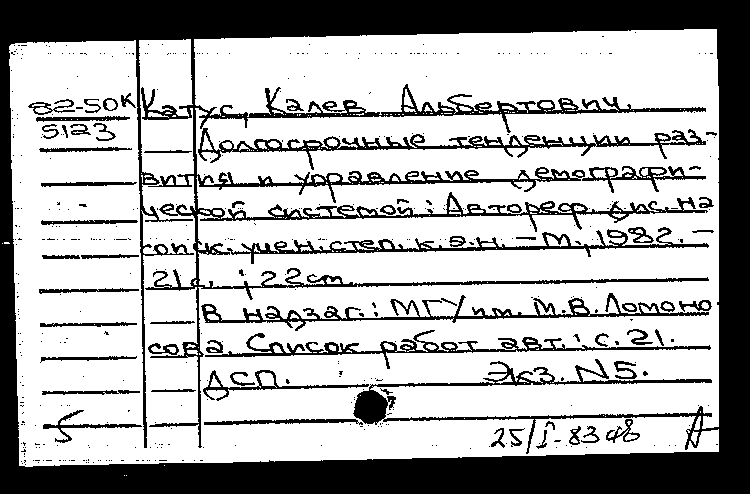 82-50к Катус, Калев Альбертович.
5123
Долгосрочные тенденции раз-
вития и управление демографи-
ческой системой: Автореф. дис. на
соиск. учен. степ. к.э.н. - М., 1982. -
21с. ; 22см.
В надзаг.: МГУ им. М.В. Ломоно-
сова. Список работ авт.: с. 21.
ДСП. Экз. N5.
5 25/I-83 А